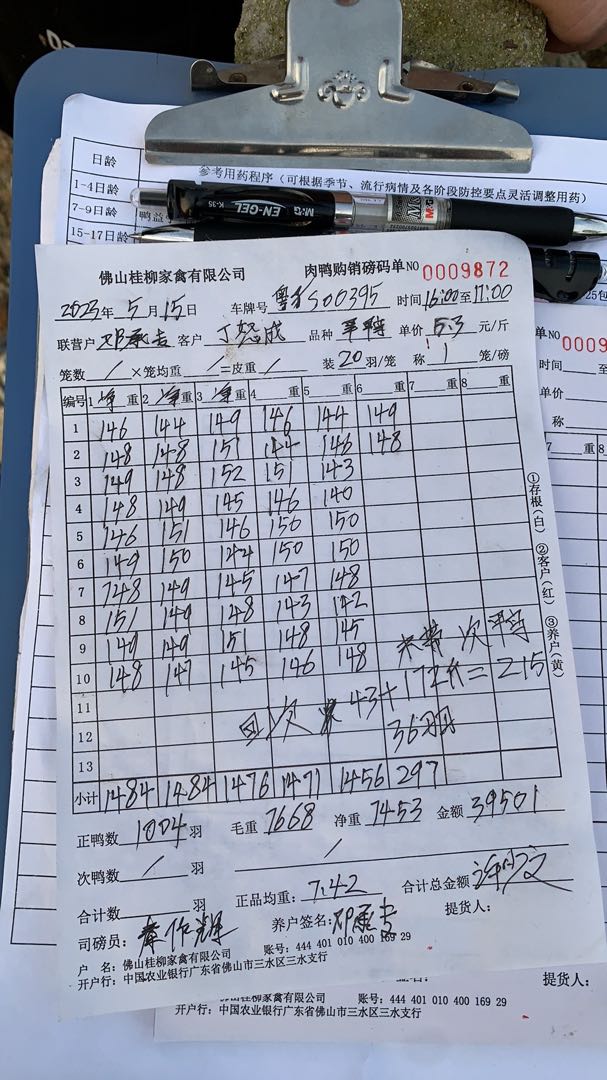 日龄
参考用药程序（可根据季节、流行病情及各阶段防控要点灵活调整用药）
1-4日龄
7-9日龄 鸭益
15-17日龄
EN-GEL K-35 M&G
佛山桂柳家禽有限公司 肉鸭购销磅码单 NO 0009872
2023年5月15日 车牌号 粤 S00395 时间 16:00至17:00
联营户 邓承吉 客户 丁 成 品种 单价 5.3 元/斤
笼数 / ×笼均重 / =皮重 / 装 20 羽/笼 称 1 笼/磅
编号 1 净重 2 净重 3 净重 4 重 5 重 6 重 7 重 8 重
1 146 144 149 146 144 149
2 148 148 151 144 146 148
3 149 148 152 151 143
4 148 149 145 146 140
5 146 151 146 150 150
6 149 150 144 150 150
7 148 149 145 147 148
8 151 149 148 143 142
9 149 149 151 148 145
10 148 147 145 146 148
次鸭
次 43+172斤=215
11
12 36羽
13
小计 1484 1484 1476 1471 1456 297
正鸭数 1004 羽 毛重 7668 净重 7453 金额 39501
次鸭数 / 羽 /
合计数 羽 正品均重: 7.42 合计总金额
司磅员: 养户签名: 邓承吉 提货人:
户 名: 佛山桂柳家禽有限公司 账号: 444 401 010 400 169 29
开户行: 中国农业银行广东省佛山市三水区三水支行
①存根(白) ②客户(红) ③养户(黄)
25包
0009
时间
单价
称
7 重 8
提货人:
佛山桂柳家禽有限公司 账号: 444 401 010 400 169 29
开户行: 中国农业银行广东省佛山市三水区三水支行